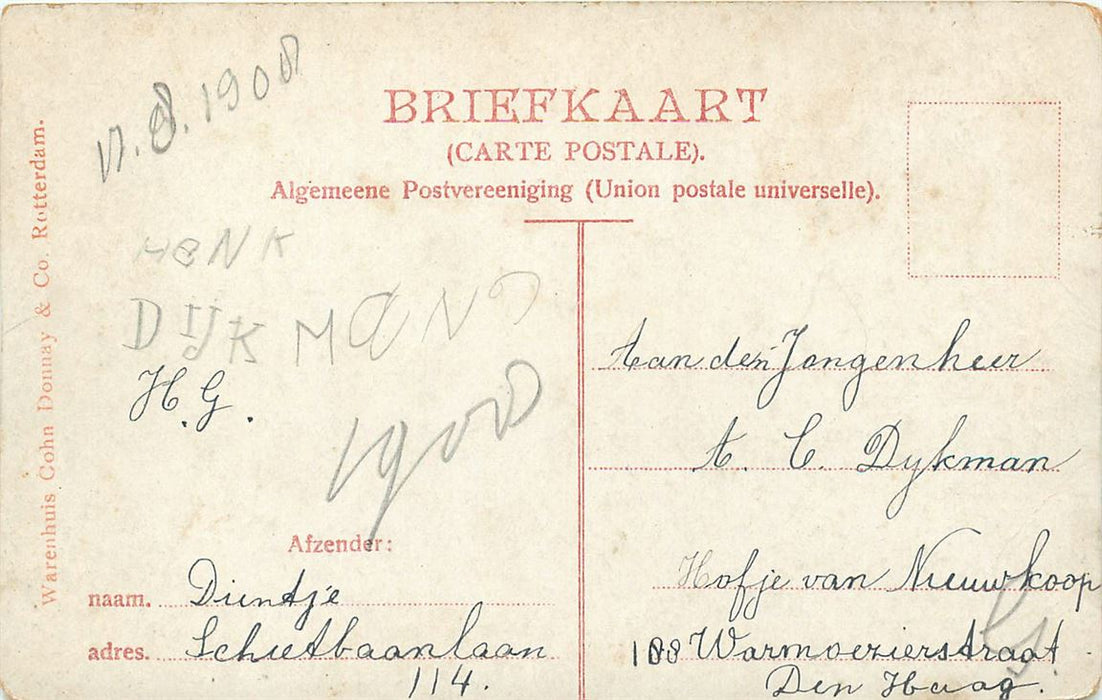 BRIEFKAART
(CARTE POSTALE).
Algemeene Postvereeniging (Union postale universelle).
Warenhuis Cohn Donnay & Co. Rotterdam.
17.8.1908
HENK
DIJKMAN
H.G.
1908
Afzender:
naam. Dientje
adres. Schietbaanlaan
114.
Aan den Jongenheer
A. C. Dykman
Hofje van Nieuwkoop
188 Warmoezierstraat
Den Haag.